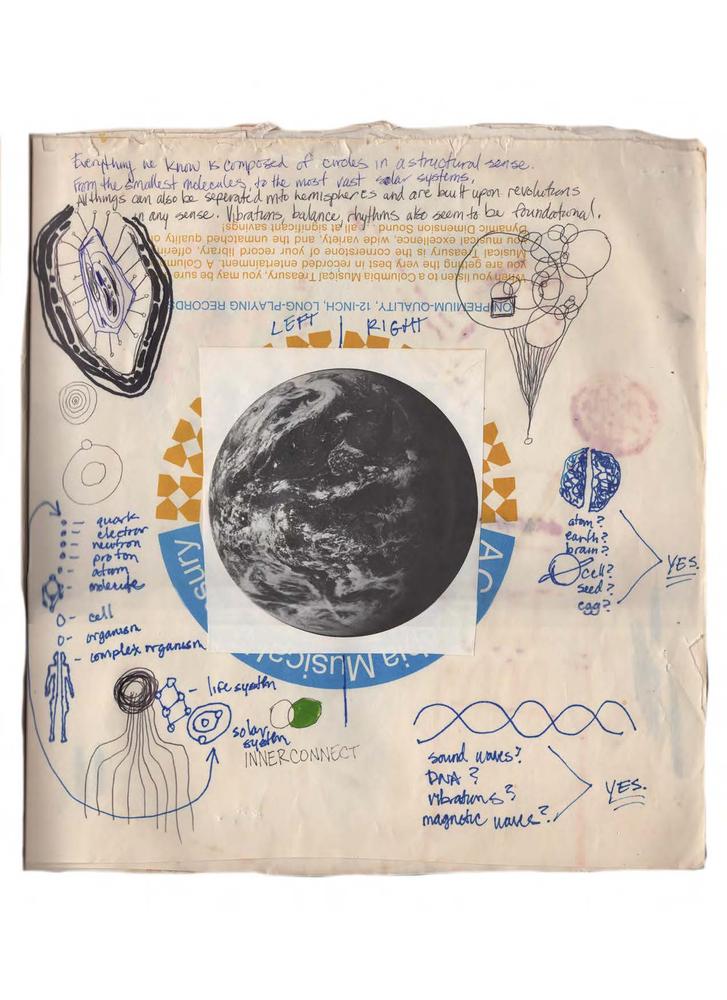 Everything we know is composed of circles in a structural sense.
From the smallest molecules, to the most vast solar systems,
All things can also be seperated into hemispheres and are built upon revolutions
in any sense. Vibrations, balance, rhythms also seem to be foundational.
Dynamic Dimension Sound...all at significant savings!
you musical excellence, wide variety, and the unmatched quality of
Musical Treasury is the cornerstone of your record library, offering
you are getting the very best in recorded entertainment. A Columbia
When you listen to a Columbia Musical Treasury, you may be sure
ON PREMIUM-QUALITY, 12-INCH, LONG-PLAYING RECORDS
LEFT RIGHT
quark
electron
neutron
proton
atom
molecule
cell
organism
complex organism
life system
solar
system
INNERCONNECT
atom?
earth?
brain?
cell?
seed?
egg?
YES.
bia Musical
sury
sound waves?
DNA?
vibrations?
magnetic waves?
YES.